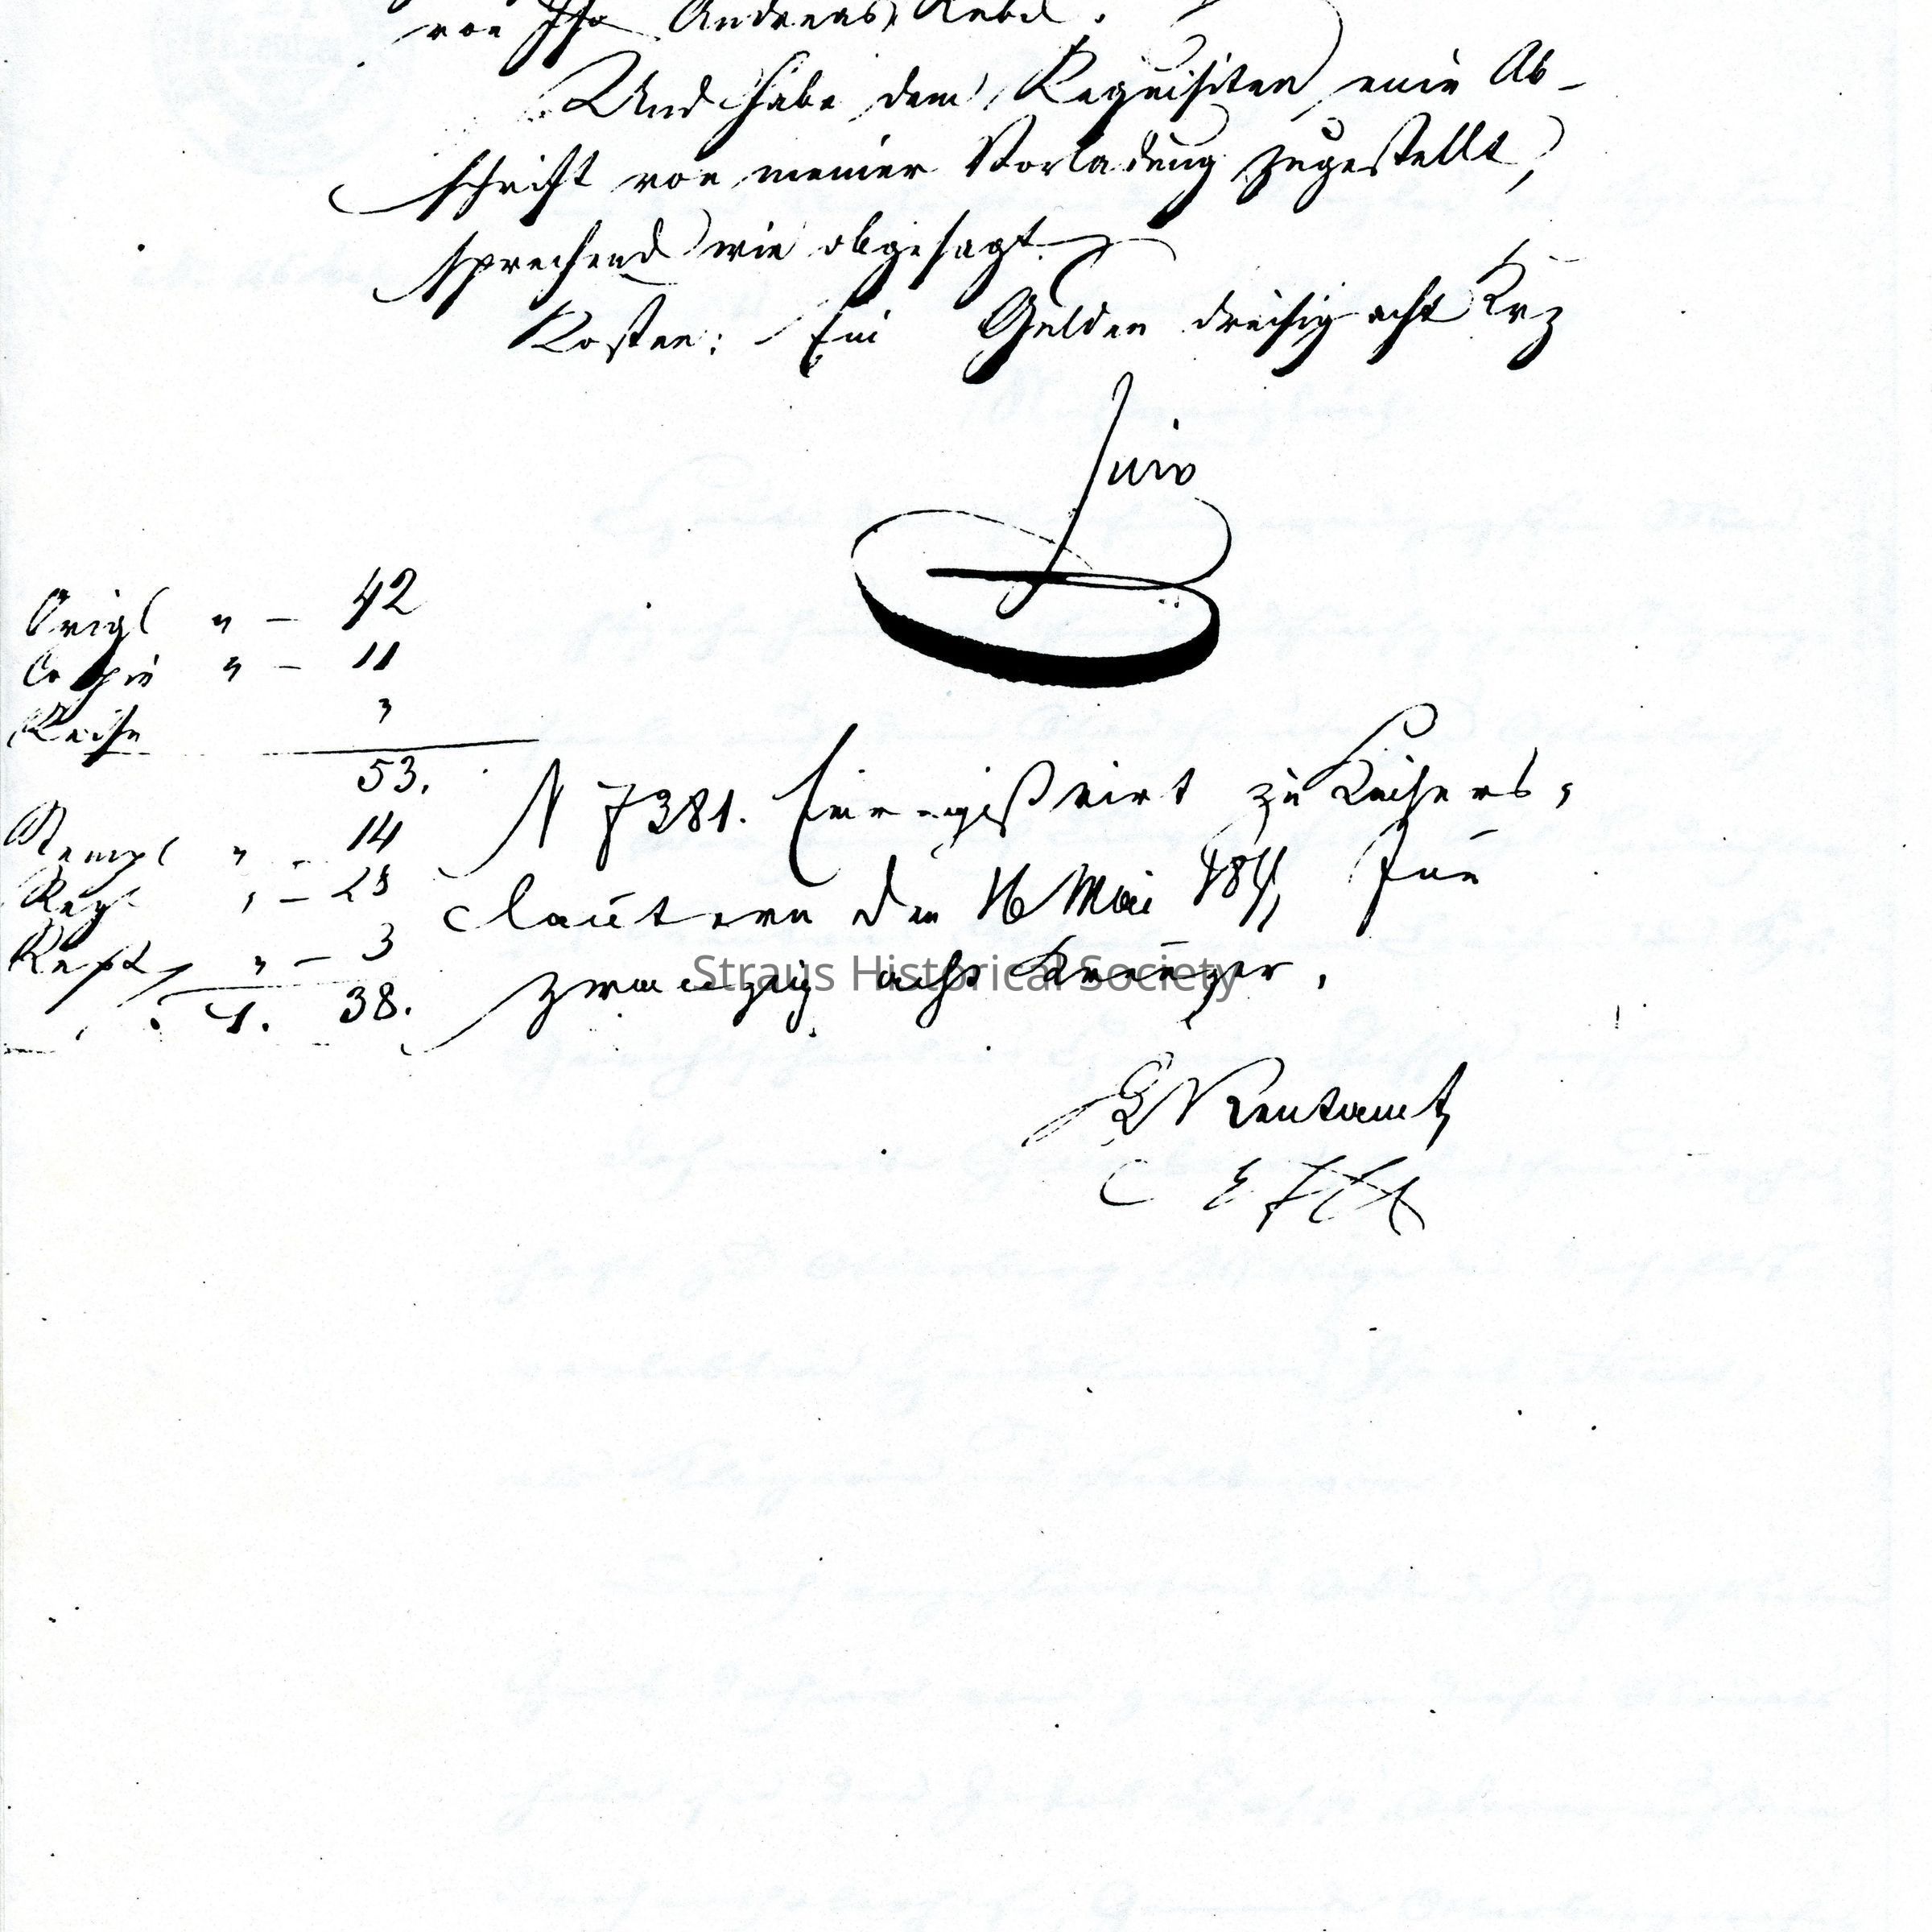 von Andreas
Und habe dem Requisiten eine Ab-
schrift von meiner Vorladung zugestellt,
sprechend wie obgesagt.
Kosten: Ein Gulden dreisig acht Krz
Origl " – 42
Copie " – 11
Reise "
53.
Stempl " – 14
Regl " – 28
Rept " – 3
1. 38.
N 7381. Einregistrirt zu Kaisers-
lautern den 16 Mai 184
zwanzig acht Kreuzer.
Straus Historical Society
Rentamt